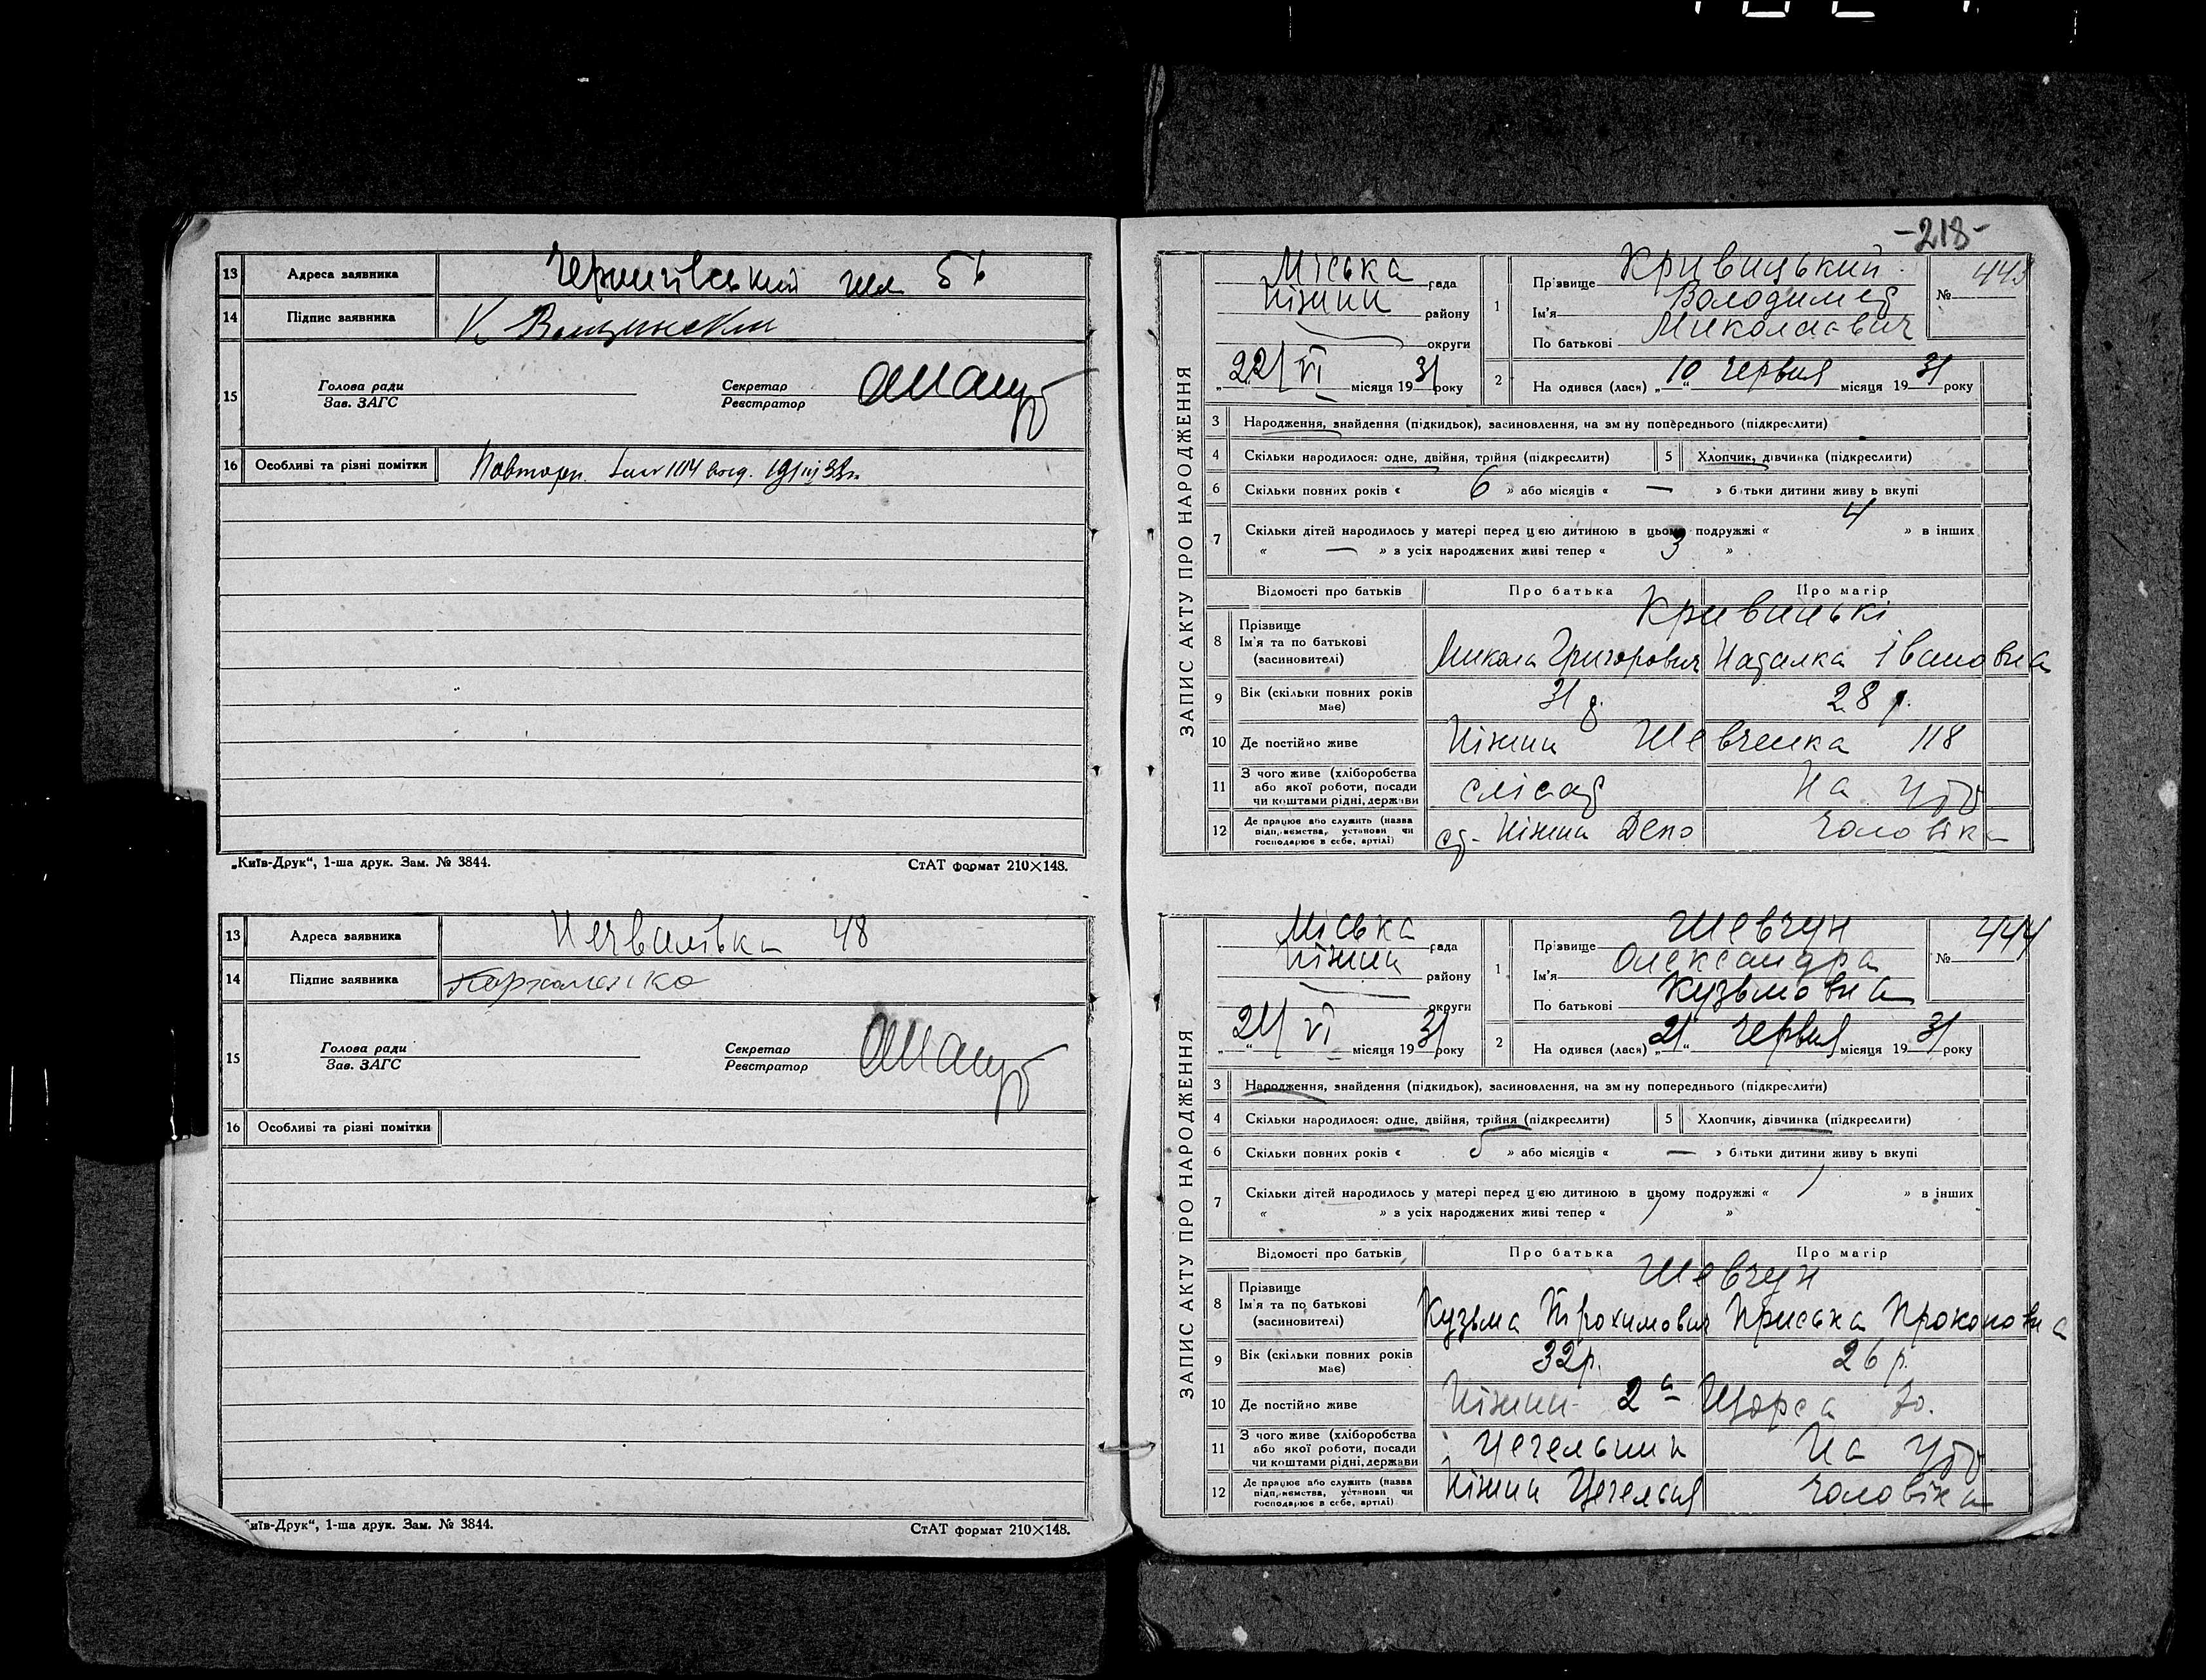 13 Адреса заявника Чернигівський шл 56
14 Підпис заявника К
15 Голова ради Секретар
Зав. ЗАГС Реєстратор
16 Особливі та різні помітки Повторн.
„Київ-Друк“, 1-ша друк. Зам. № 3844. СтАТ формат 210×148.
13 Адреса заявника 48
14 Підпис заявника
15 Голова ради Секретар
Зав. ЗАГС Реєстратор
16 Особливі та різні помітки
иїв-Друк“, 1-ша друк. Зам. № 3844. СтАТ формат 210×148.
-218-
ЗАПИС АКТУ ПРО НАРОДЖЕННЯ
Міська рада
Ніжин району
округи
„22/VI місяця 1931 року
1 Прізвище Кривицький
Ім'я Володимер
По батькові Миколаевич
№ 443
2 На одився (лася) „10“ Червня місяця 1931 року
3 Народження, знайдення (підкидьок), засиновлення, на зм ну попереднього (підкреслити)
4 Скільки народилося: одне, двійня, трійня (підкреслити) 5 Хлопчик, дівчинка (підкреслити)
6 Скільки повних років « 6 » або місяців « — » батьки дитини живу ь вкупі
7 Скільки дітей народилось у матері перед цією дитиною в цьому подружжі « 4 » в інших
« — » з усіх народжених живі тепер « 3 »
Відомості про батьків Про батька Про матір
8 Прізвище Кривицькі
Ім'я та по батькові Микола Григорович Наталка Івановна
(засиновителі)
9 Вік (скільки повних років має) 31 р. 28 р.
10 Де постійно живе Ніжин Шевченка 118
11 З чого живе (хліборобства або якої роботи, посади чи коштами рідні, держави слісар На утр
12 Де працює або служить (назва підприємства, установи чи господарює в себе, артілі) ст. Ніжин Депо чоловіка
ЗАПИС АКТУ ПРО НАРОДЖЕННЯ
Міська рада
Ніжин району
округи
„24/“ VI місяця 1931 року
1 Прізвище Шевчун
Ім'я Олександра
По батькові Кузьмовна
№ 444
2 На одився (лася) „21“ Червня місяця 1931 року
3 Народження, знайдення (підкидьок), засиновлення, на зм ну попереднього (підкреслити)
4 Скільки народилося: одне, двійня, трійня (підкреслити) 5 Хлопчик, дівчинка (підкреслити)
6 Скільки повних років « 5 » або місяців « — » батьки дитини живу ь вкупі
7 Скільки дітей народилось у матері перед цією дитиною в цьому подружжі « 1 » в інших
« » з усіх народжених живі тепер « 1 »
Відомості про батьків Про батька Про матір
8 Прізвище Шевчун
Ім'я та по батькові Кузьма Трохимович Приська Прокоповна
(засиновителі)
9 Вік (скільки повних років має) 32 р. 26 р.
10 Де постійно живе Ніжин 2а Щорса 70.
11 З чого живе (хліборобства або якої роботи, посади чи коштами рідні, держави Цегельник На утр
12 Де працює або служить (назва підприємства, установи чи господарює в себе, артілі) Ніжин Цегельня чоловіка